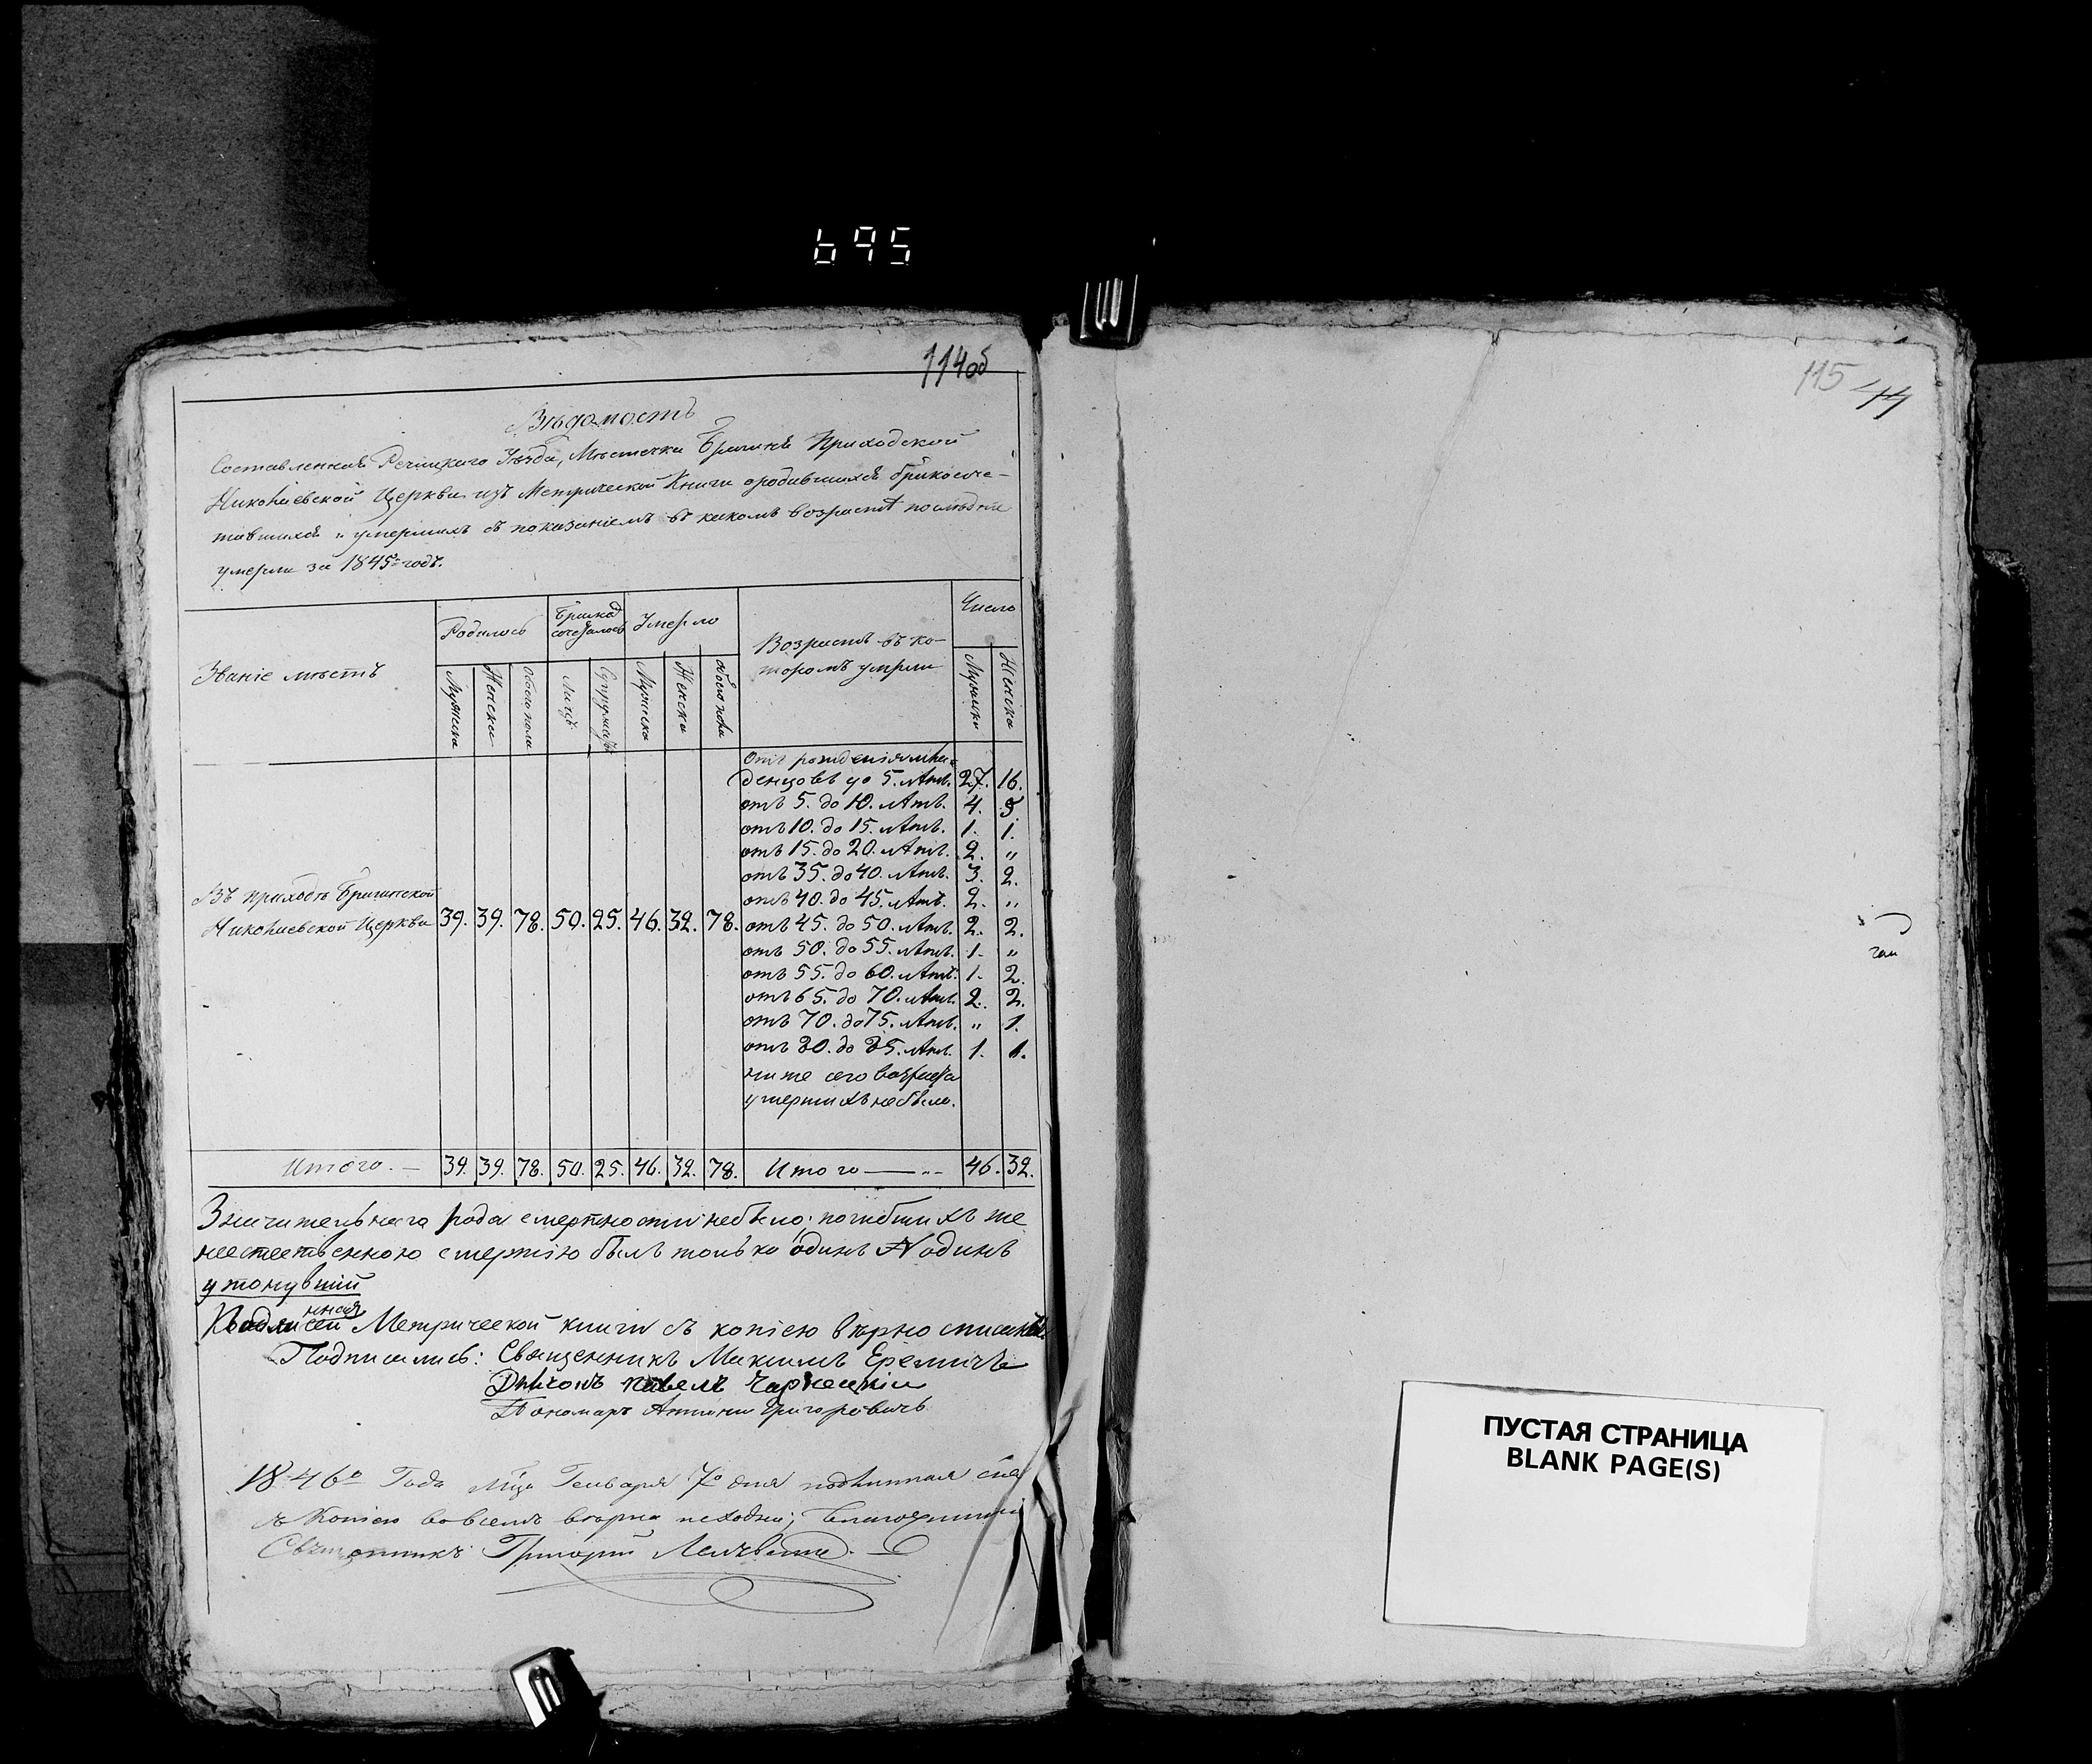 695
114об
115 44
Вѣдомость
Составленная Речицкаго Уѣзда, Мѣстечка Брагина Приходской
Николаевской Церкви изъ Метрической Книги о родившихся бракосоче-
тавшихся и умершихъ съ показаніемъ въ какомъ возрастѣ послѣдніе
умерли за 1845º годъ.
Званіе мѣстъ
Родилось
Бракосочеталось
Умерло
Возрастъ въ ко-
торомъ умерли
Число
Мужска Женска Обоего пола Лицъ Супружествъ Мужска Женска обоего пола Мужска Женска
Отъ рожденія мла-
денцовъ до 5. лѣтъ. 27. 16.
отъ 5. до 10. лѣтъ. 4. 5.
отъ 10. до 15. лѣтъ. 1. 1.
отъ 15. до 20. лѣтъ. 2. "
отъ 35. до 40. лѣтъ. 3. 2.
отъ 40. до 45. лѣтъ. 2. "
Въ приходѣ Брагинской
Николаевской Церкви 39. 39. 78. 50. 25. 46. 32. 78. отъ 45. до 50. лѣтъ. 2. 2.
отъ 50. до 55. лѣтъ. 1. "
отъ 55. до 60. лѣтъ. 1. 2.
отъ 65. до 70. лѣтъ. 2. 2.
отъ 70. до 75. лѣтъ. " 1.
отъ 80. до 85. лѣтъ. 1. 1.
сего возраста
умершихъ небыло.
Итого. — 39. 39. 78. 50. 25. 46. 32. 78. Итого — 46. 32.
Значительнаго рода смертности небыло; погибшихъ же
неестественною смертію былъ только одинъ N одинъ
утонувшій
сей Метрической книги съ копіею вѣрно
Подписались: Священникъ Максимъ Еремичъ
Діаконъ Павелъ
Пономарь Антоній Григоровичъ
1846º Года Мца Генваря 7º дня подлинная сія
съ Копіею во всемъ вѣрна и сходна; Благочинный
Священникъ Григорій
ПУСТАЯ СТРАНИЦА
BLANK PAGE(S)